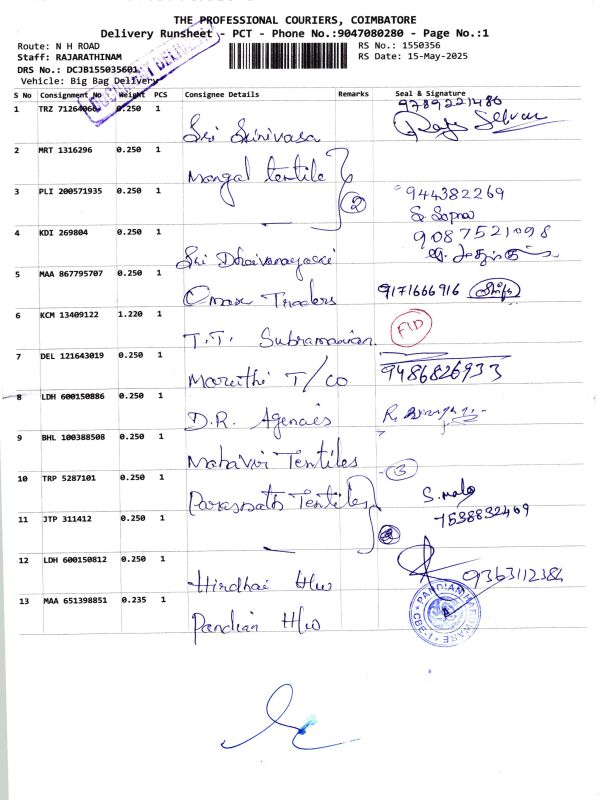 THE PROFESSIONAL COURIERS, COIMBATORE
Delivery Runsheet - PCT - Phone No.:9047080280 - Page No.:1
Route: N H ROAD
RS No.: 1550356
Staff: RAJARATHINAM
RS Date: 15-May-2025
DRS No.: DCJB155035601
Vehicle: Big Bag Delivery
DOCUMENT DELIVERY
S No Consignment No Weight PCS Consignee Details Remarks Seal & Signature
1 TRZ 0.250 1 Sri Srinivasa 9789221486
2 MRT 1316296 0.250 1 Mangal textile
3 PLI 200571935 0.250 1 2 944382269
4 KDI 269804 0.250 1 Sri 9087521098
5 MAA 867795707 0.250 1 Omax Traders 9171666916
6 KCM 13409122 1.220 1 T.T. Subramanian FID
7 DEL 121643019 0.250 1 Maruthi T/co 9486826933
8 LDH 600150886 0.250 1 D.R. Agencies
9 BHL 100388508 0.250 1 Mahavir Textiles 3
10 TRP 5287101 0.250 1 Parasnath Textiles S. mala
7538832469
11 JTP 311412 0.250 1
12 LDH 600150812 0.250 1 Hirdhai H/w 9363112384
13 MAA 651398851 0.235 1 Pandian H/w
PANDIAN HARDWARE CBE-1